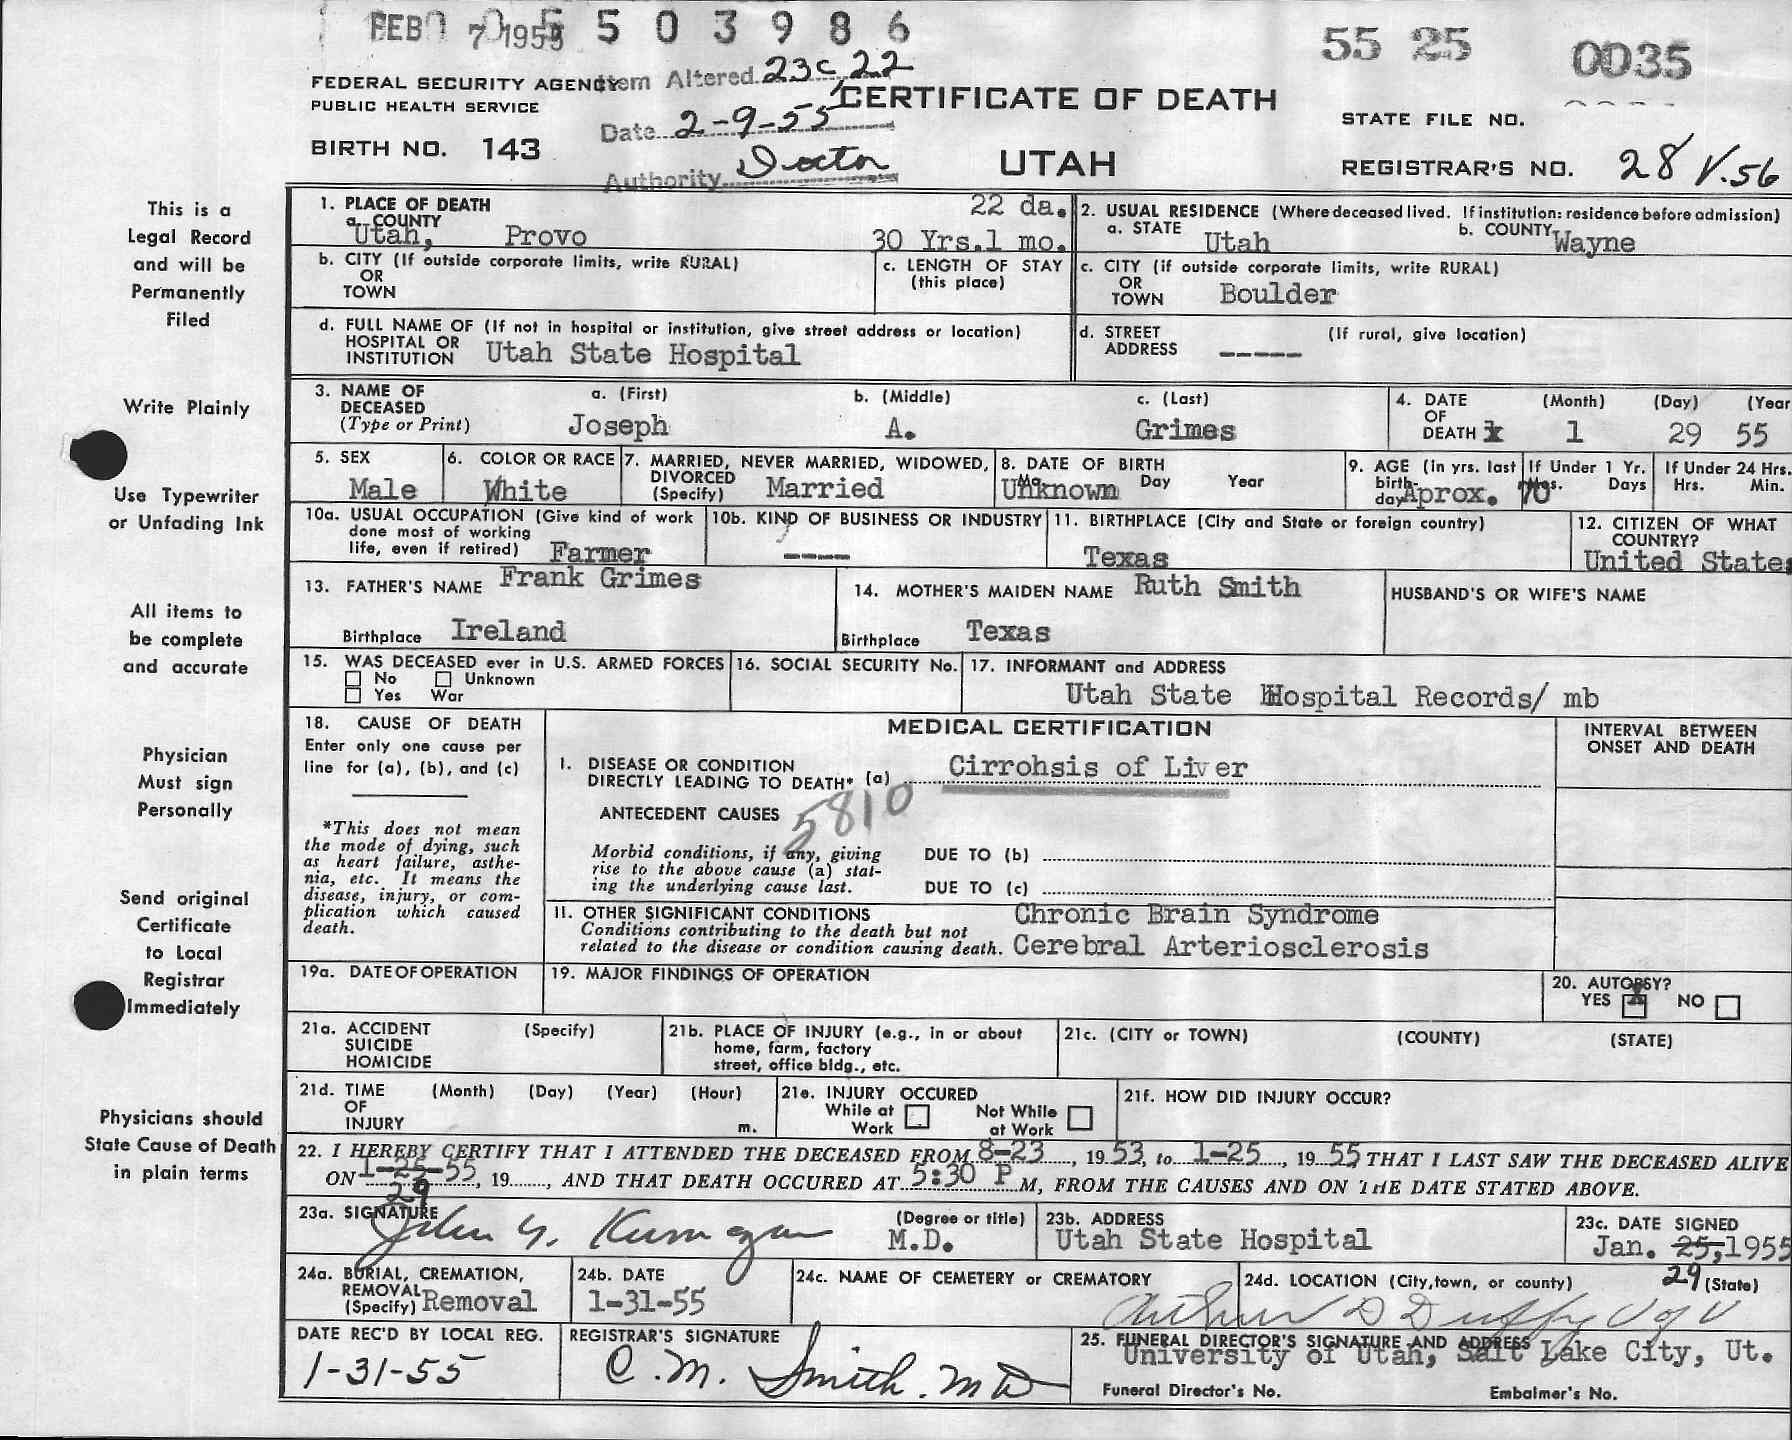 FEB 7 1955 5 5 0 3 9 8 6
55 25 0035
FEDERAL SECURITY AGENCY Item Altered 23c, 22
PUBLIC HEALTH SERVICE
CERTIFICATE OF DEATH
STATE FILE NO.
Date 2-9-55
BIRTH NO. 143
UTAH
REGISTRAR'S NO. 28 V.56
Authority Doctor
This is a
Legal Record
and will be
Permanently
Filed
Write Plainly
Use Typewriter
or Unfading Ink
All items to
be complete
and accurate
Physician
Must sign
Personally
Send original
Certificate
to Local
Registrar
Immediately
Physicians should
State Cause of Death
in plain terms
1. PLACE OF DEATH
a. COUNTY
Utah, Provo
22 da.
30 Yrs.1 mo.
2. USUAL RESIDENCE (Where deceased lived. If institution: residence before admission)
a. STATE Utah b. COUNTY Wayne
b. CITY (If outside corporate limits, write RURAL)
OR
TOWN
c. LENGTH OF STAY
(this place)
c. CITY (if outside corporate limits, write RURAL)
OR
TOWN Boulder
d. FULL NAME OF (If not in hospital or institution, give street address or location)
HOSPITAL OR
INSTITUTION Utah State Hospital
d. STREET (If rural, give location)
ADDRESS -----
3. NAME OF
DECEASED
(Type or Print)
a. (First) b. (Middle) c. (Last)
Joseph A. Grimes
4. DATE (Month) (Day) (Year
OF
DEATH 1 29 55
5. SEX
Male
6. COLOR OR RACE
White
7. MARRIED, NEVER MARRIED, WIDOWED,
DIVORCED
(Specify) Married
8. DATE OF BIRTH
Mo. Day Year
Unknown
9. AGE (in yrs. last
birth-
day Aprox. 70
If Under 1 Yr.
Mos. Days
If Under 24 Hrs.
Hrs. Min.
10a. USUAL OCCUPATION (Give kind of work
done most of working
life, even if retired) Farmer
10b. KIND OF BUSINESS OR INDUSTRY
----
11. BIRTHPLACE (City and State or foreign country)
Texas
12. CITIZEN OF WHAT
COUNTRY?
United States
13. FATHER'S NAME Frank Grimes
Birthplace Ireland
14. MOTHER'S MAIDEN NAME Ruth Smith
Birthplace Texas
HUSBAND'S OR WIFE'S NAME
15. WAS DECEASED ever in U.S. ARMED FORCES
No Unknown
Yes War
16. SOCIAL SECURITY No.
17. INFORMANT and ADDRESS
Utah State Hospital Records/ mb
18. CAUSE OF DEATH
Enter only one cause per
line for (a), (b), and (c)
*This does not mean
the mode of dying, such
as heart failure, asthe-
nia, etc. It means the
disease, injury, or com-
plication which caused
death.
MEDICAL CERTIFICATION
INTERVAL BETWEEN
ONSET AND DEATH
I. DISEASE OR CONDITION
DIRECTLY LEADING TO DEATH* (a) Cirrohsis of Liver
ANTECEDENT CAUSES
5810
Morbid conditions, if any, giving
rise to the above cause (a) stat-
ing the underlying cause last.
DUE TO (b)
DUE TO (c)
II. OTHER SIGNIFICANT CONDITIONS
Conditions contributing to the death but not
related to the disease or condition causing death.
Chronic Brain Syndrome
Cerebral Arteriosclerosis
19a. DATE OF OPERATION
19. MAJOR FINDINGS OF OPERATION
20. AUTOPSY?
YES X NO
21a. ACCIDENT (Specify)
SUICIDE
HOMICIDE
21b. PLACE OF INJURY (e.g., in or about
home, farm, factory
street, office bldg., etc.
21c. (CITY or TOWN) (COUNTY) (STATE)
21d. TIME (Month) (Day) (Year) (Hour)
OF
INJURY m.
21e. INJURY OCCURED
While at Work
Not While at Work
21f. HOW DID INJURY OCCUR?
22. I HEREBY CERTIFY THAT I ATTENDED THE DECEASED FROM 8-23, 19 53, to 1-25, 19 55 THAT I LAST SAW THE DECEASED ALIVE
ON 1-25-55, 19......, AND THAT DEATH OCCURED AT 5:30 P M, FROM THE CAUSES AND ON THE DATE STATED ABOVE.
29
23a. SIGNATURE (Degree or title)
John Y. M.D.
23b. ADDRESS
Utah State Hospital
23c. DATE SIGNED
Jan. 25, 1955
29
24a. BURIAL, CREMATION,
REMOVAL
(Specify) Removal
24b. DATE
1-31-55
24c. NAME OF CEMETERY or CREMATORY
24d. LOCATION (City, town, or county) (State)
Arthur D Duffy U of U
DATE REC'D BY LOCAL REG.
1-31-55
REGISTRAR'S SIGNATURE
C. M. Smith. MD
25. FUNERAL DIRECTOR'S SIGNATURE AND ADDRESS
University of Utah, Salt Lake City, Ut.
Funeral Director's No. Embalmer's No.